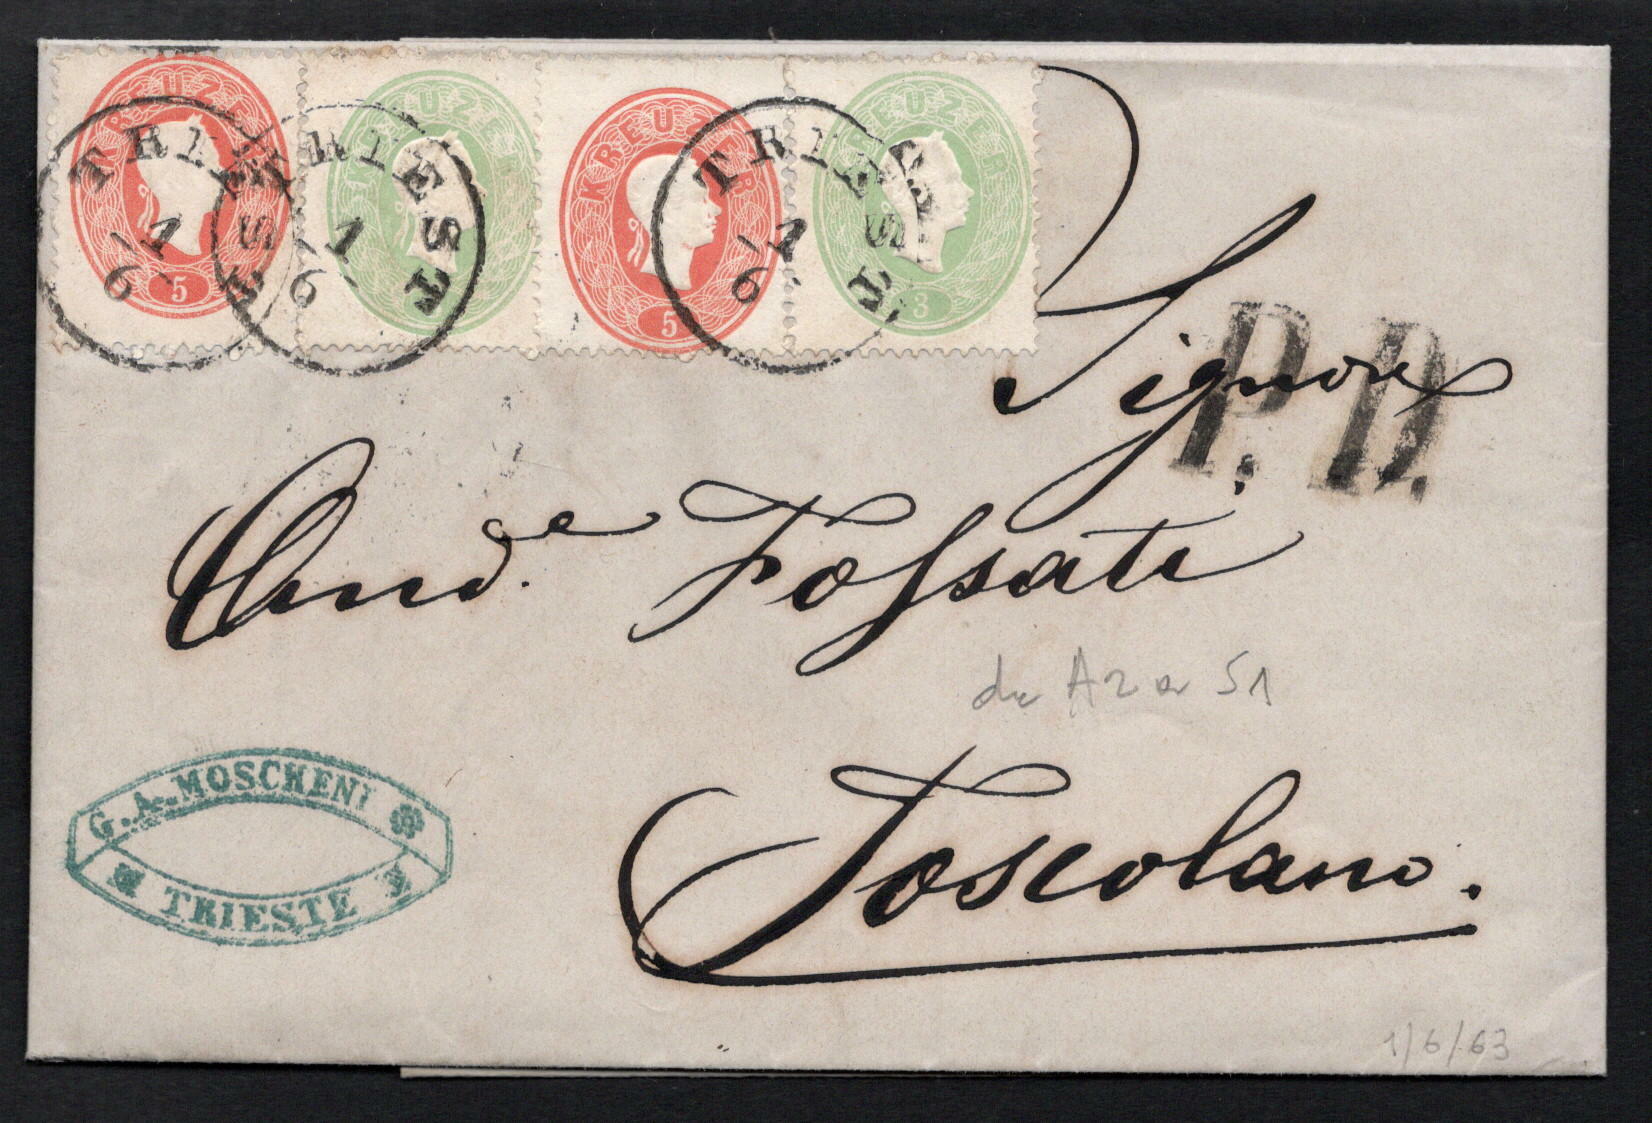 KREUZER
5
KREUZER
KREUZER
5
KREUZER
3
TRIEST
1/6
TRIEST
1/6
TRIEST
1/6
P.D.
Signore
And.ᵉᵃ Fossati
Toscolano.
G. A. MOSCHENI
TRIESTE
1/6/63